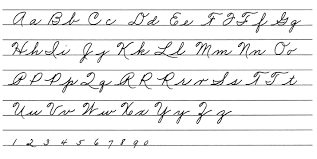 Aa Bb Cc Dd Ee F F F f Gg
Hh Ii Jj Kk Ll Mm Nn Oo
P P P p Qq R R r r Ss T T t
Uu Vv Ww Xx Yy Zz
1 2 3 4 5 6 7 8 9 0